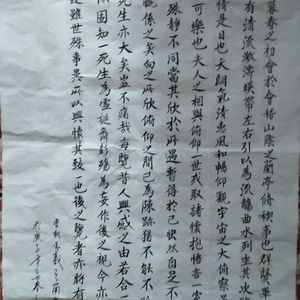 暮春之初會於會稽山陰之蘭亭脩稧事也群賢畢
有清流激湍暎帶左右引以為流觴曲水列坐其次
情是日也天朗氣清惠風和暢仰觀宇宙之大俯察
可樂也夫人之相與俯仰一世或取諸懷抱悟言一室
殊靜不同當其欣於所遇暫得於己快然自足不
慨係之矣向之所欣俯仰之間已為陳跡猶不能不
死生亦大矣豈不痛哉每覽昔人興感之由若合一
固知一死生為虛誕齊彭殤為妄作後之視今亦
雖世殊事異所以興懷其致一也後之覽者亦將有